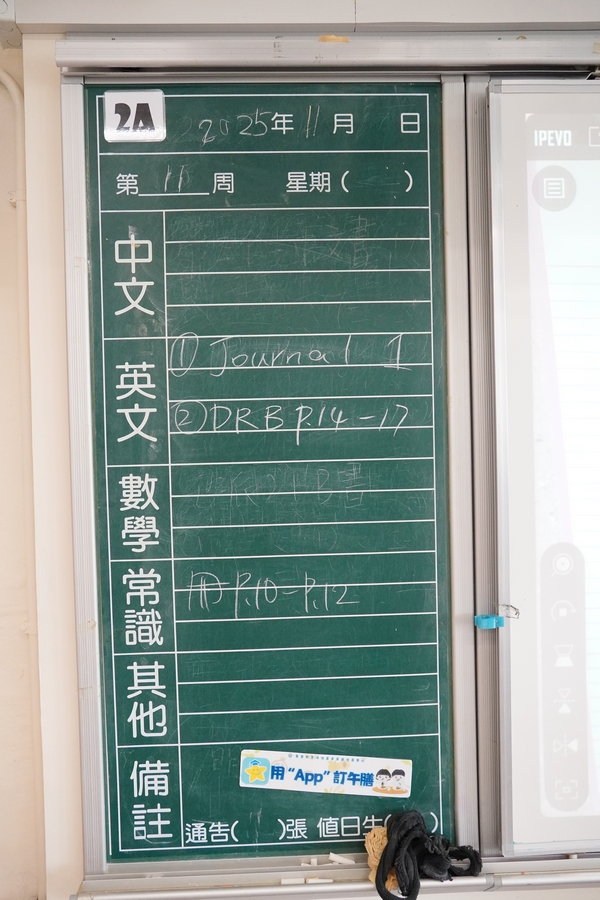 2A
2025年 11 月 日
第 11 周 星期( )
中文
英文
① Journal 1
② DRB P.14-17
數學
常識
P.10-P.12
其他
備註
用“App”訂午膳
通告( )張 值日生( )
IPEVO